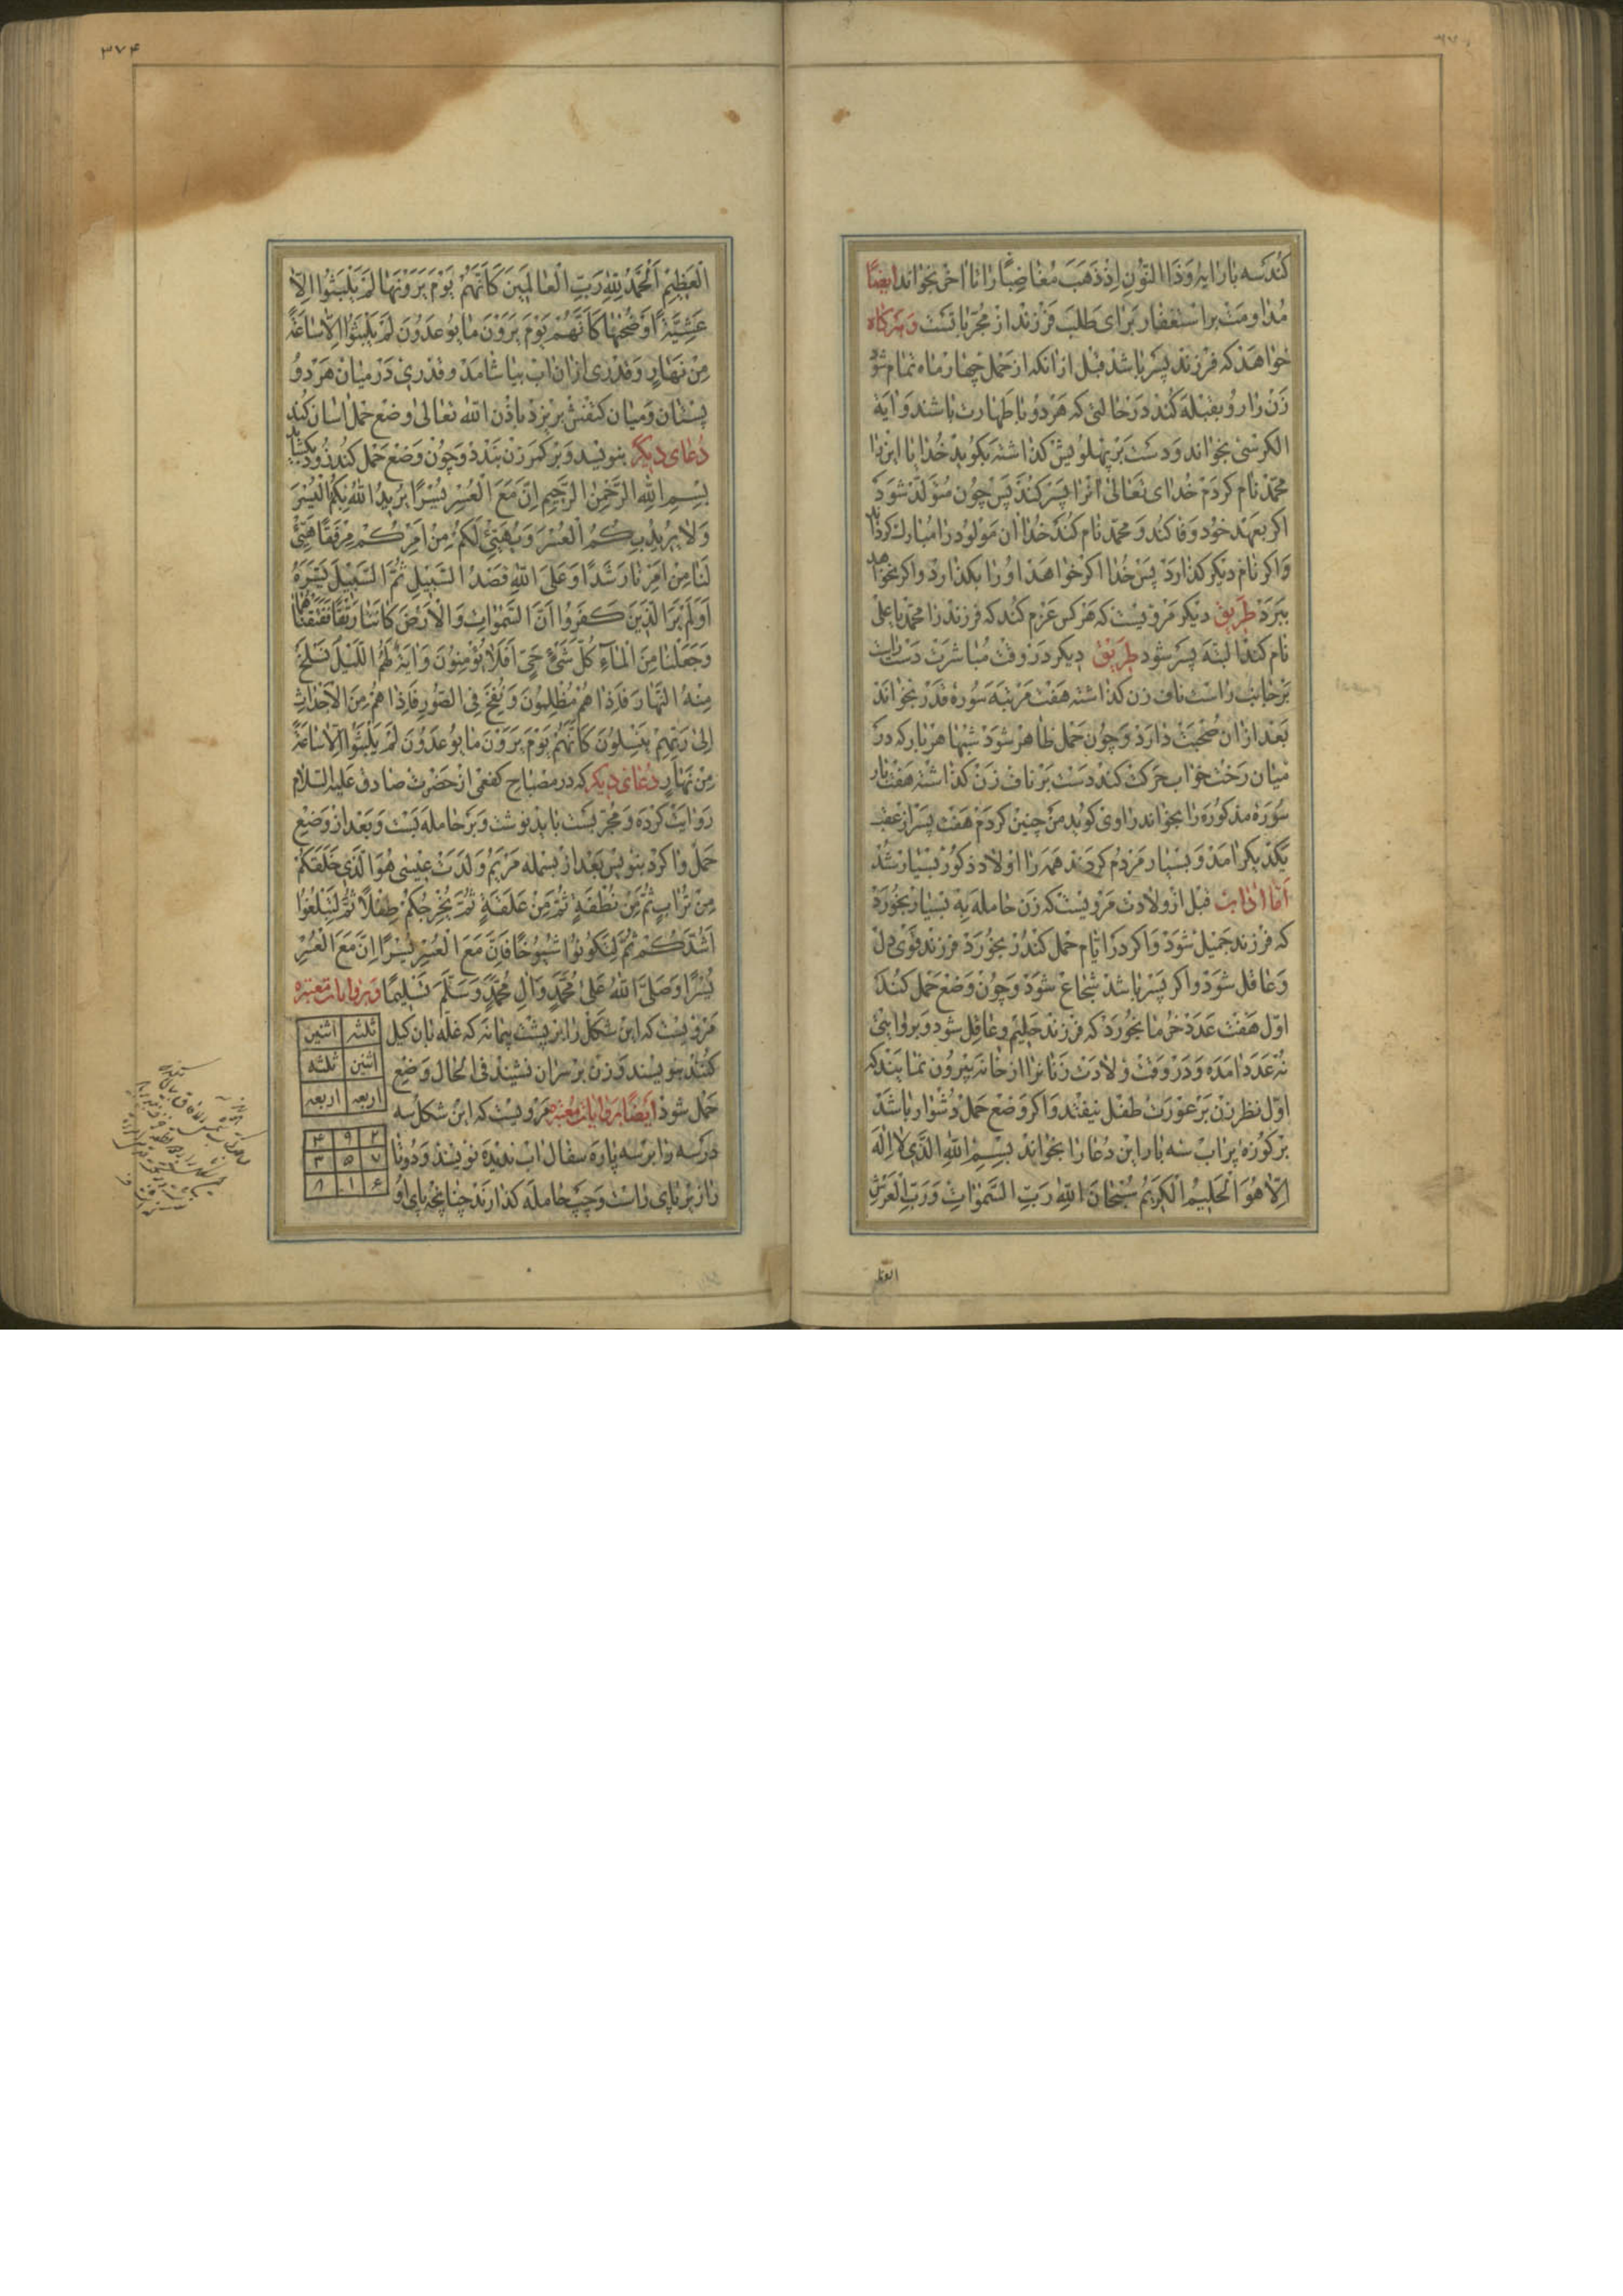 کند سه بار ایه وذا النون اذ ذهب مغاضبا را تا اخر بخواند ایضا
مداومت بر استغفار برای طلب فرزند از مجرباتست و هر کاه
خواهد که فرزند پسر باشد قبل از انکه از حمل چهار ماه تمام شود
زن را رو بقبله کند در حالتی که هر دو با طهارت باشند و ایة
الکرسی بخواند و دست بر پهلویش کذاشته بکوید خدایا این را
محمد نام کردم خدای تعالی انرا پسر کند پس چون متولد شود
اکر بعهد خود وفا کند و محمد نام کند خدا ان مولود را مبارک کرداند
و اکر نام دیکر کذارد پس خدا اکر خواهد او را بکذارد و اکر نخواهد
ببرد طریق دیکر مرویست که هر کس عزم کند که فرزند را محمد یا علی
نام کند البته پسر شود طریق دیکر در وقت مباشرت دست راست
بر جانب راست ناف زن کذاشته هفت مرتبه سوره قدر بخواند
بعد از ان صحبت دارد و چون حمل ظاهر شود شبها هر بار که در
میان رخت خواب حرکت کند دست بر ناف زن کذاشته هفت بار
سوره مذکوره را بخواند راوی کوید من چنین کردم هفت پسر از عقب
یکدیکر امد و بسیار مردم کردند همه را اولاد ذکور بسیار شد
اما اداب قبل از ولادت مرویست که زن حامله به بسیار بخورد
که فرزند جمیل شود و اکر در ایام حمل کندر بخورد فرزند قوی دل
و عاقل شود و اکر پسر باشد شجاع شود و چون وضع حمل کند
اول هفت عدد خرما بخورد که فرزند حلیم و عاقل شود و بروایتی
نه عدد امده و در وقت ولادت زنانرا از خانه بیرون نمایند که
اول نظر زن بر عورت طفل نیفتد و اکر وضع حمل دشوار باشد
بر کوزهٔ پر اب سه بار این دعا را بخواند بسم الله الذی لا اله
الا هو الحلیم الکریم سبحان الله رب السموات و رب العرش
العظ
۳۷۴
العظیم الحمد لله رب العالمین کانهم یوم یرونها لم یلبثوا الا
عشیة او ضحیها کانهم یوم یرون ما یوعدون لم یلبثوا الا ساعة
من نهار و قدری از ان اب بیاشامد و قدری در میان هر دو
پستان و میان کتفش بریزد باذن الله تعالی وضع حمل اسان کند
دعای دیکر بنویسد و بر کمر زن بندد و چون وضع حمل کند زود بکشاید
بسم الله الرحمن الرحیم ان مع العسر یسرا یرید الله بکم الیسر
ولا یرید بکم العسر و یهیئ لکم من امرکم مرفقا هیئ
لنا من امرنا رشدا و علی الله قصد السبیل ثم السبیل یسره
اولم یر الذین کفروا ان السموات والارض کانتا رتقا ففتقناهما
وجعلنا من الماء کل شیء حی افلا یؤمنون وایة لهم اللیل نسلخ
منه النهار فاذا هم مظلمون ونفخ فی الصور فاذا هم من الاجداث
الی ربهم ینسلون کانهم یوم یرون ما یوعدون لم یلبثوا الا ساعة
من نهار دعای دیکر که در مصباح کفعمی از حضرت صادق علیه السلام
روایت کرده و مجربست باید نوشت و بر حامله بست و بعد از وضع
حمل وا کرد بنویس بعد از بسمله مریم ولدت عیسی هو الذی خلقکم
من تراب ثم من نطفة ثم من علقة ثم یخرجکم طفلا ثم لتبلغوا
اشدکم ثم لتکونوا شیوخا فان مع العسر یسرا ان مع العسر
یسرا و صلی الله علی محمد وال محمد وسلم تسلیما و بروایات معتبره
مرویست که این شکل را بر پشت پیمانه که غله بان کیل
کنند بنویسند و زن بر سر ان نشیند فی الحال وضع
حمل شود ایضا بروایات معتبره مرویست که این شکل سه
در سه را بر سه پاره سفال اب ندیده نویسند و دوتا
را زیر پای راست و چپ حامله کذارند چنانچه پای او
ثلثه اثنین
اثنین ثلثه
اربعه اربعه
۲ ۹ ۴
۷ ۵ ۳
۶ ۱ ۸